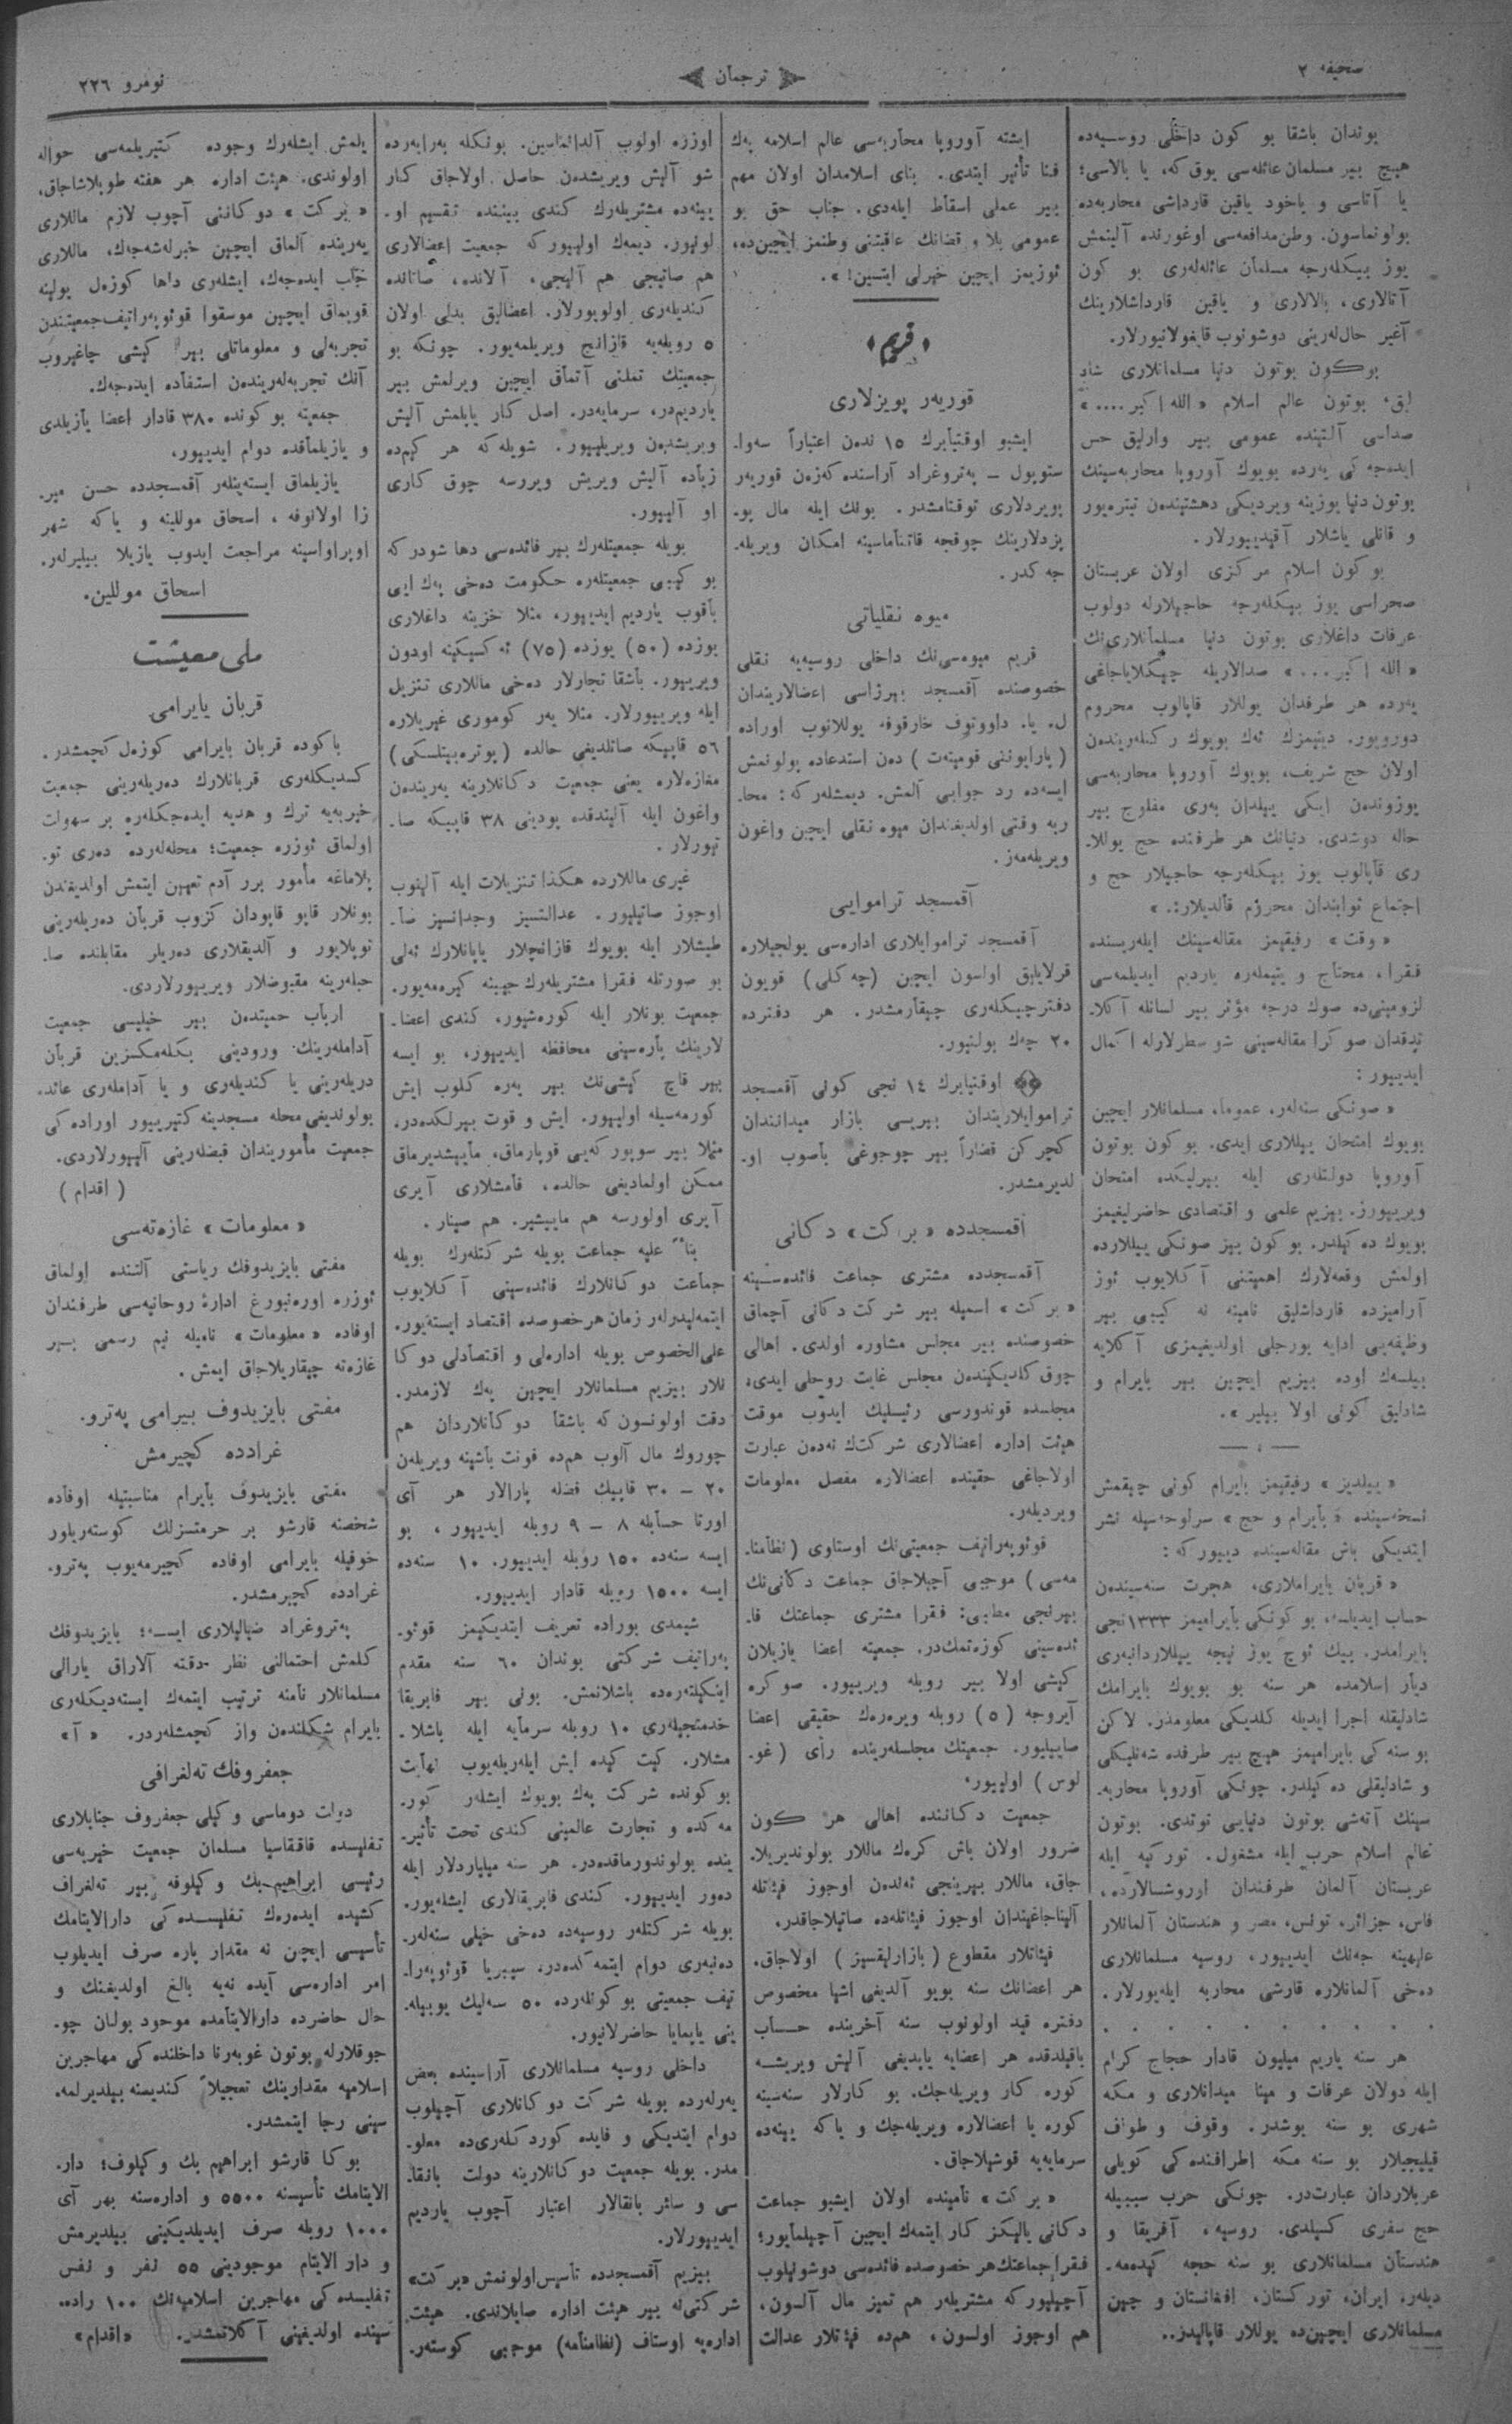 صحیفه ٢
ترجمان
نومرو ٢٢٦
بوندان باشقا بو كون داخلی روسیه‌ده
هیچ بیر مسلمان عائله‌سی یوق كه، یا بالاسی؛
یا آتاسی و یاخود یاقین قارداشی محاربه‌ده
بولونماسون. وطن مدافعه‌سی اوغورنده آلینمش
یوز بیكلەرجه مسلمان عائله‌لەری بو كون
آتالاری، بالالاری و یاقین قارداشلارینك
آغیر حال‌لەرینی دوشونوب قایغولانیورلار.
بوكون بوتون دنیا مسلمانلاری شاد
لیق، بوتون عالم اسلام «الله اكبر....»
صداسی آلتینده عمومی بیر وارلیق حس
ایده‌جه‌كی یەرده بویوك آوروپا محاربه‌سینك
بوتون دنیا یوزینه ویردیكی دهشتیندەن تیترەیور
و قانلی یاشلار آقیدیورلار.
بو كون اسلام مركزی اولان عربستان
صحراسی یوز بیكلەرجه حاجیلارله دولوب
عرفات داغلاری بوتون دنیا مسلمانلاری‌نك
«الله اكبر...» صدالاریله چیكلایاجاغی
یەرده هر طرفدان یوللار قاپالوب محروم
دورویور. دینمزك ئەك بویوك ركنلەریندەن
اولان حج شریف، بویوك آوروپا محاربه‌سی
یوزوندەن ایكی ییلدان بەری مفلوج بیر
حاله دوشدی. دنیانك هر طرفنده حج یوللا-
ری قاپالوب یوز بیكلەرجه حاجیلار حج و
اجتماع ثوابندان محروم قالدیلار.»
«وقت» رفیقیمز مقاله‌سینك ایلەریسنده
فقرا، محتاج و یتیملەره یاردیم ایدیلمه‌سی
لزومینی‌ده صوك درجه مؤثر بیر لسانله آكلا-
تدقدان صوكرا مقاله‌سینی شو سطرلارله اكمال
ایدیور:
«صونكی سنه‌لەر، عموما، مسلمانلار ایچین
بویوك امتحان ییللاری ایدی. بو كون بوتون
آوروپا دولتلەری ایله بیرلیكده امتحان
ویریورز. بیزیم علمی و اقتصادی حاضرلیغیمز
بویوك ده‌كیلدر. بو كون بیز صونكی ییللارده
اولمش وقعه‌لارك اهمیتنی آكلایوب ئوز
آرامیزده قارداشلیق نامینه نه كیبی بیر
وظیفه‌یی ادایه بورجلی اولدیغیمزی آكلایه
بیلسه‌ك اوده بیزیم ایچین بیر بایرام و
شادلیق كونی اولا بیلیر».
«ییلدیز» رفیقیمز بایرام كونی چیقمش
نسخه‌سینده «بایرام و حج» سرلوحه‌سیله نشر
ایتدیكی باش مقاله‌سینده دییور كه:
«قربان بایراملاری، هجرت سنه‌سیندەن
حساب ایدیلسه، بو كونكی بایرامیمز ١٣٣٣نجی
بایرامدر. بیك ئوچ یوز نیچه ییللاردانبەری
دیار اسلامده هر سنه بو بویوك بایرامك
شادلیقله اجرا ایدیله كلدیكی معلومدر. لاكن
بو سنه كی بایرامیمز هیچ بیر طرفده شەنلیكلی
و شادلیقلی ده‌كیلدر. چونكی آوروپا محاربه-
سینك آتەشی بوتون دنیایی توتدی. بوتون
عالم اسلام حرب ایله مشغول. توركیه ایله
عربستان آلمان طرفندان اوروشالارده،
فاس، جزائر، تونس، مصر و هندستان آلمانلار
علیهینه جەنك ایدییور، روسیه مسلمانلاری
دەخی آلمانلاره قارشی محاربه ایلەیورلار.
. . . . . . . . . .
هر سنه یاریم میلیون قادار حجاج كرام
ایله دولان عرفات و مینا میدانلاری و مكه
شهری بو سنه بوشدر. وقوف و طواف
قیلیجیلار بو سنه مكه اطرافنده‌كی كویلی
عربلاردان عبارت‌در. چونكی حرب سببیله
حج سفری كسیلدی. روسیه، آفریقا و
هندستان مسلمانلاری بو سنه حجه كیده‌مه-
دیلەر، ایران، توركستان، افغانستان و چین
مسلمانلاری ایچین‌ده یوللار قاپالیدر..
ایشته آوروپا محاربه‌سی عالم اسلامه یەك
فنا تأثیر ایتدی. بنای اسلامدان اولان مهم
بیر عملی اسقاط ایلەدی. جناب حق بو
عمومی بلا و قضانك عاقبتنی وطنمز ایچین‌ده،
ئوزیمز ایچین خیرلی ایتسین!».
«قریم»
قوریەر پویزلاری
ایشبو اوقتیابرك ١٥ ندەن اعتباراً سەوا-
ستوپول – پەتروغراد آراسنده كەزەن قوریەر
پویزدلاری توقتامشدر. بونك ایله مال پو-
یزدلارینك چوقجه قاتناماسینه امكان ویریله-
جه‌كدر.
میوه نقلیاتی
قریم میوه‌سی‌نك داخلی روسیه‌یه نقلی
خصوصنده آقمسجد بیرژاسی اعضالاریندان
ل. یا. داووتوف خارقوفه یوللانوب اوراده
(پارایوننی قومیتەت) دەن استدعاده بولونمش
ایسه‌ده رد جوابی آلمش. دیمشلەركه: محا-
ربه وقتی اولدیغندان میوه نقلی ایچین واغون
ویریله‌مەز.
آقمسجد تراموایی
آقمسجد تراموایلاری اداره‌سی یولجیلاره
قرلایلیق اولسون ایچین (چەكلی) قویون
دفترچیكلەری چیقارمشدر. هر دفترده
٢٠ چەك بولنیور.
اوقتیابرك ١٤ نجی كونی آقمسجد
تراموایلاریندان بیریسی بازار میدانندان
كچركن قضاراً بیر چوجوغی باصوب او-
لدیرمشدر.
آقمسجدده «بركت» دكانی
آقمسجدده مشتری جماعت فائده‌سینه
«بركت» اسمیله بیر شركت دكانی آچماق
خصوصنده بیر مجلس مشاوره اولدی. اهالی
چوق كلدیكیندەن مجلس غایت روحلی ایدی،
مجلسده قوندورسی رئیسلیك ایدوب موقت
هیئت اداره اعضالاری شركتك نه‌دەن عبارت
اولاجاغی حقینده اعضالاره مفصل معلومات
ویردیلەر.
قوئوپەراتیف جمعیتی‌نك اوستاوی (نظامنا-
مه‌سی) موجبی آچیلاجاق جماعت دكانی‌نك
بیرنجی مطلبی: فقرا مشتری جماعتك فا-
ئده‌سینی كوزه‌تمك‌در. جمعیته اعضا یازیلان
كیشی اولا بیر روبله ویرییور. صوكره
آیروجه (٥) روبله ویره‌رەك حقیقی اعضا
صایییلیور. جمعیتك مجلسلەرینده رأی (غو-
لوس) اولییور.
جمعیت دكاننده اهالی هر كون
ضرور اولان باش كرەك ماللار بولوندیریلا-
جاق، ماللار بیرینجی ئەلدەن اوجوز فیئاتله
آلیناجاغیندان اوجوز فیئاتله‌ده صاتیلاجاقدر.
فیئاتلار مقطوع (بازارلیقسیز) اولاجاق.
هر اعضانك سنه بویو آلدیغی اشیا مخصوص
دفتره قید اولونوب سنه آخرینده حساب
باقیلدقده هر اعضایه یاپدیغی آلیش ویریشه
كوره كار ویریله‌جك. بو كارلار سنه‌سینه
كوره یا اعضالاره ویریله‌جك و یاكه یینه‌ده
سرمایه‌یه قوشیلاجاق.
«بركت» نامینده اولان ایشبو جماعت
دكانی یالیكز كار ایتمه‌ك ایچین آچیلمایور؛
فقرا جماعتك هر خصوصده فائده‌سی دوشونیلوب
آچیلیور كه مشتریلەر هم تمیز مال آلسون،
هم اوجوز اولسون، هم‌ده فیئتلار عدالت
اوزره اولوب آلدانماسین. بونكله برابەرده
شو آلیش ویریشدەن حاصل اولاجاق كار
یینه‌ده مشتریلەرك كندی بیننده تقسیم او-
لونیور. دیمه‌ك اولییوركه جمعیت اعضالاری
هم صاتیجی هم آلیجی، آلانده، صاتانده
كندیلەری اولویورلار. اعضالیق بدلی اولان
٥ روبله‌یه قازانج ویریلمه‌یور. چونكه بو
جمعیتك تملنی آتماق ایچین ویرلمش بیر
یاردیم‌در، سرمایه‌در. اصل كار یاپلمش آلیش
ویریشدەن ویریلییور. شویله كه هر كیم‌ده
زیاده آلیش ویریش ویررسه چوق كاری
او آلییور.
بویله جمعیتلەرك بیر فائده‌سی دها شودر كه
بو كیبی جمعیتلەره حكومت دەخی یەك ایی
باقوب یاردیم ایدییور، مثلا خزینه داغلاری
یوزده (٥٠) یوزده (٧٥) ئەكسیكینه اودون
ویرییور. باشقا تجارلار دەخی ماللاری تنزیل
ایله ویرییورلار. مثلا یەر كوموری غیریلاره
٥٦ قاپیكه صاتلدیغی حالده (پوتره‌بیتلسكی)
مغازه‌لاره یعنی جمعیت دكانلارینه یەریندەن
واغون ایله آلیندقده پودینی ٣٨ قاپیكه صا-
تیورلار.
غیری ماللارده هكذا تنزیلات ایله آلینوب
اوجوز صاتیلیور. عدالتسیز وجدانسیز صا-
طیشلار ایله بویوك قازانچلار یاپانلارك ئەلی
بو صورتله فقرا مشتریلەرك جیبینه كیره‌مه‌یور.
جمعیت بونلار ایله كوره‌شیور، كندی اعضا-
لارینك پاره‌سینی محافظه ایدییور، بو ایسه
بیر قاچ كیشی‌نك بیر یەره كلوب ایش
كورمه‌سیله اولییور. ایش و قوت بیرلكده‌در،
مثلا بیر سوپور كه‌یی قوپارماق، مایپیشدیرماق
ممكن اولمادیغی حالده، قامشلاری آیری
آیری اولورسه هم ماییشیر. هم صینار.
بناً علیه جماعت بویله شركتلەرك بویله
جماعت دوكانلارك فائده‌سینی آكلایوب
ایتمه‌لیدرلەر زمان هر خصوصده اقتصاد ایسته‌یور.
علی‌الخصوص بویله اداره‌لی و اقتصادلی دوكا
نلار بیزیم مسلمانلار ایچین یەك لازمدر.
دقت اولونسون كه باشقا دوكانلاردان هم
چوروك مال آلوب هم‌ده فونت باشینه ویریلەن
٢٠ – ٣٠ قاپیك فضله پارالار هر آی
اورتا حسابله ٨ – ٩ روبله ایدییور، بو
ایسه سنه‌ده ١٥٠ روبله ایدییور. ١٠ سنه‌ده
ایسه ١٥٠٠ روبله قادار ایدییور.
شیمدی بوراده تعریف ایتدیكیمز قوئو-
پەراتیف شركتی بوندان ٦٠ سنه مقدم
اینكیلته‌ره‌ده باشلانمش. بونی بیر فابریقا
خدمتجیلەری ١٠ روبله سرمایه ایله باشلا-
مشلار. كیت كیده ایش ایلەریله‌یوب نهایت
بو كونده شركت یەك بویوك ایشلەر كور-
مه‌كده و تجارت عالمینی كندی تحت تأثیر-
ینده بولوندورماقده‌در. هر سنه میلیاردلار ایله
دەور ایدییور. كندی فابریقالاری ایشله‌یور.
بویله شركتلەر روسیه‌ده دەخی خیلی سنه‌لەر-
دەنبەری دوام ایتمه‌كده‌در، سیبریا قوئوپەرا-
تیف جمعیتی بو كونلەرده ٥٠ سەلیك یوبیله-
ینی یاپمایا حاضرلانیور.
داخلی روسیه مسلمانلاری آراسینده بعض
یەرلەرده بویله شركت دوكانلاری آچیلوب
دوام ایتدیكی و فایده كوردكلەری‌ده معلو-
مدر. بویله جمعیت دوكانلارینه دولت بانقا-
سی و سائر بانقالار اعتبار آچوب یاردیم
ایدییورلار.
بیزیم آقمسجدده تأسیس اولونمش «بركت»
شركتی‌نه بیر هیئت اداره صایلاندی. هیئت
اداره‌یه اوستاف (نظامنامه) موجبی كوستەر-
یلمش ایشلەرك وجوده كتیریلمه‌سی حواله
اولوندی. هیئت اداره هر هفته طوپلاشاجاق،
«بركت» دوكاننی آچوب لازم ماللاری
یەرینده آلماق ایچین خبرله‌شه‌جه‌ك، ماللاری
جلب ایده‌جه‌ك، ایشلەری داها كوزەل یولینه
قویماق ایچین موسقوا قوئوپەراتیف جمعیتندن
تجربه‌لی و معلوماتلی بیر كیشی چاغیروب
آنك تجربه‌لەریندەن استفاده ایده‌جه‌ك.
جمعیته بو كونده ٣٨٠ قادار اعضا یازیلدی
و یازیلماقده دوام ایدییور.
یازیلماق ایسته‌ینلەر آقمسجدده حسن میر-
زا اولانوفه، اسحاق موللینه و یاكه شهر
اوپراواسینه مراجعت ایدوب یازیلا بیلیرلەر.
اسحاق موللین.
ملی معیشت
قربان بایرامی
باكوده قربان بایرامی كوزەل كچمشدر.
كسدیكلەری قربانلارك دەریلەرینی جمعیت
خیریه‌یه ترك و هدیه ایده‌جكلەره بر سهولت
اولماق ئوزره جمعیت؛ محله‌لەرده دەری تو-
پلاماغه مأمور برر آدم تعیین ایتمش اولدیغندن
بونلار قاپو قاپودان كزوب قربان دەریلەرینی
توپلایور و آلدیقلاری دەریلر مقابلنده صا-
حبلەرینه مقبوضلار ویرییورلاردی.
ارباب حمیتدەن بیر خیلیسی جمعیت
آداملەرینك ورودینی بكله‌مكسزین قربان
دریلەرینی یا كندیلەری و یا آداملەری عائد-
بولوندیغی محله مسجدینه كتیرییور اوراده‌كی
جمعیت مأموریندان قبضلەرینی آلییورلاردی.
(اقدام)
«معلومات» غازه‌ته‌سی
مفتی بایزیدوفك ریاستی آلتنده اولماق
ئوزره اورەنبورغ ادارۀ روحانیه‌سی طرفندان
اوفاده «معلومات» نامیله نیم رسمی بیر
غازه‌ته چیقاریلاجاق ایمش.
مفتی بایزیدوف بیرامی پەترو-
غرادده كچیرمش
مفتی بایزیدوف بایرام مناسبتیله اوفاده
شخصنه قارشو بر حرمتسزلك كوسته‌ریلور
خوفیله بایرامی اوفاده كچیرمه‌یوب پەترو-
غرادده كچیرمشدر.
پەتروغراد ضیالیلاری ایسه؛ بایزیدوفك
كلمش احتمالنی نظر دقته آلاراق یارالی
مسلمانلار نامنه ترتیب ایتمه‌ك ایسته‌دیكلەری
بایرام شیكلندەن واز كچمشلەردر. «آ»
جعفروفك تەلغرافی
دولت دوماسی وكیلی جعفروف جنابلاری
تفلیسده قافقاسیا مسلمان جمعیت خیریه‌سی
رئیسی ابراهیم بك وكیلوفه بیر تەلغراف
كشیده ایده‌رەك تفلیسده‌كی دارالایتامك
تأسیسی ایچین نه مقدار پاره صرف ایدیلوب
امر اداره‌سی آیده نه‌یه بالغ اولدیغنك و
حال حاضرده دارالایتامده موجود بولنان چو-
جوقلارله بوتون غوبەرنا داخلنده‌كی مهاجرین
اسلامیه مقدارینك تعجیلاً كندیسنه بیلدیرلمه-
سینی رجا ایتمشدر.
بوكا قارشو ابراهیم بك وكیلوف؛ دار-
الایتامك تأسیسنه ٥٥٠٠ و اداره‌سنه بهر آی
١٠٠٠ روبله صرف ایدیلدیكینی بیلدیرمش
و دار الایتام موجودینی ٥٥ نفر و نفس
تفلیسده‌كی مهاجرین اسلامیه‌نك ١٠٠ راده-
سینده اولدیغینی آكلاتمشدر. «اقدام»